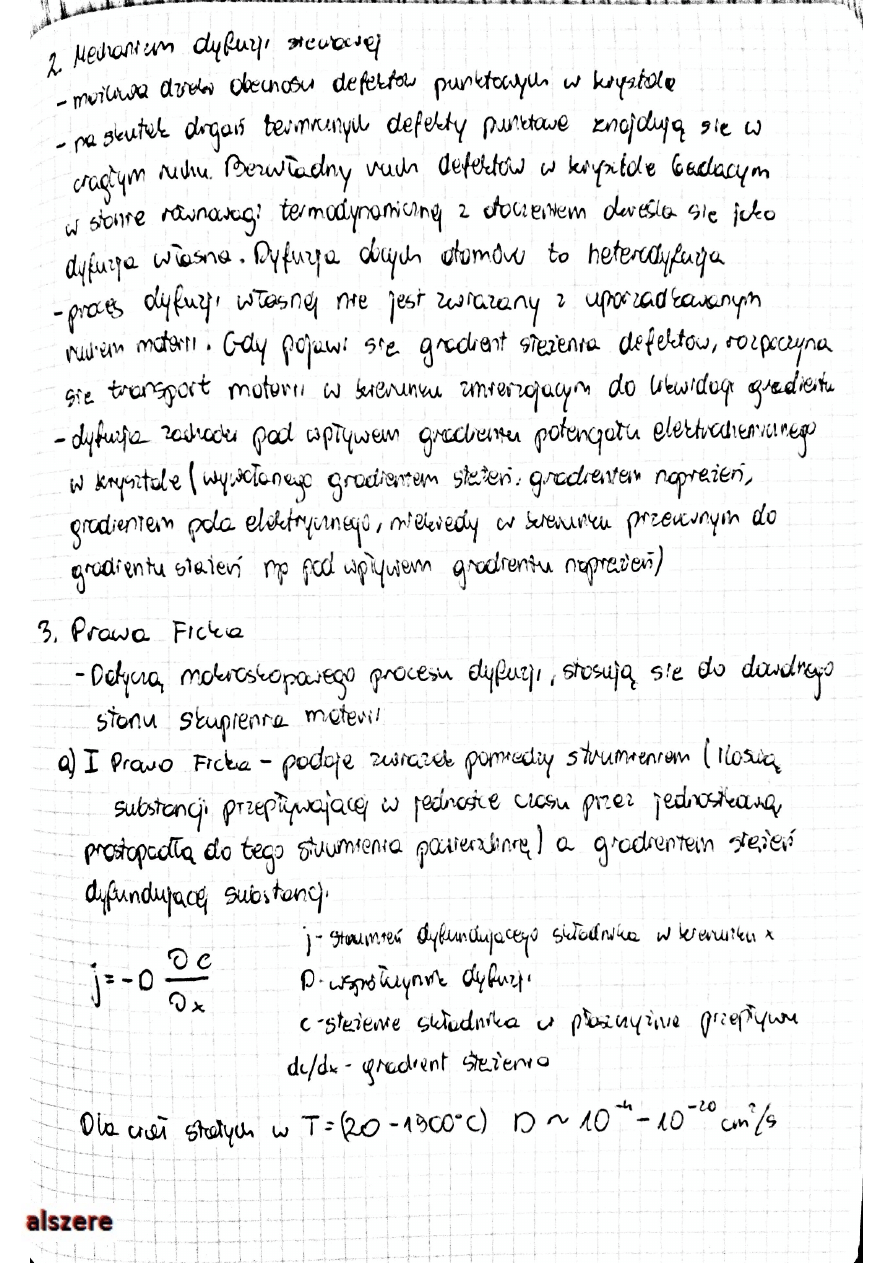 2. Mechanizm dyfuzji sieciowej
- możliwa dzięki obecności defektów punktowych w krysztale
- na skutek drgań termicznych defekty punktowe znajdują się w
ciągłym ruchu. Bezwładny ruch defektów w krysztale będącym
w stanie równowagi termodynamicznej z otoczeniem określa się jako
dyfuzja własna. Dyfuzja obcych atomów to heterodyfuzja
- proces dyfuzji własnej nie jest związany z uporządkowanym
ruchem materii. Gdy pojawi się gradient stężenia defektów, rozpoczyna
się transport materii w kierunku zmierzającym do likwidacji gradientu
- dyfuzja zachodzi pod wpływem gradientu potencjału elektrochemicznego
w krysztale (wywołanego gradientem stężeń, gradientem naprężeń,
gradientem pola elektrycznego, niekiedy w kierunku przeciwnym do
gradientu stężeń np pod wpływem gradientu naprężeń)
3. Prawa Ficka
- Dotyczą makroskopowego procesu dyfuzji, stosują się do dowolnego
stanu skupienia materii
a) I Prawo Ficka - podaje związek pomiędzy strumieniem (ilością
substancji przepływającej w jednostce czasu przez jednostkową,
prostopadłą do tego strumienia powierzchnię) a gradientem stężeń
dyfundującej substancji.
j = -D ∂c/∂x
j - strumień dyfundującego składnika w kierunku x
D - współczynnik dyfuzji
c - stężenie składnika w płaszczyźnie przepływu
dc/dx - gradient stężenia
Dla ciał stałych w T = (20 - 1500°C) D ~ 10⁻⁴ - 10⁻²⁰ cm²/s
alszere